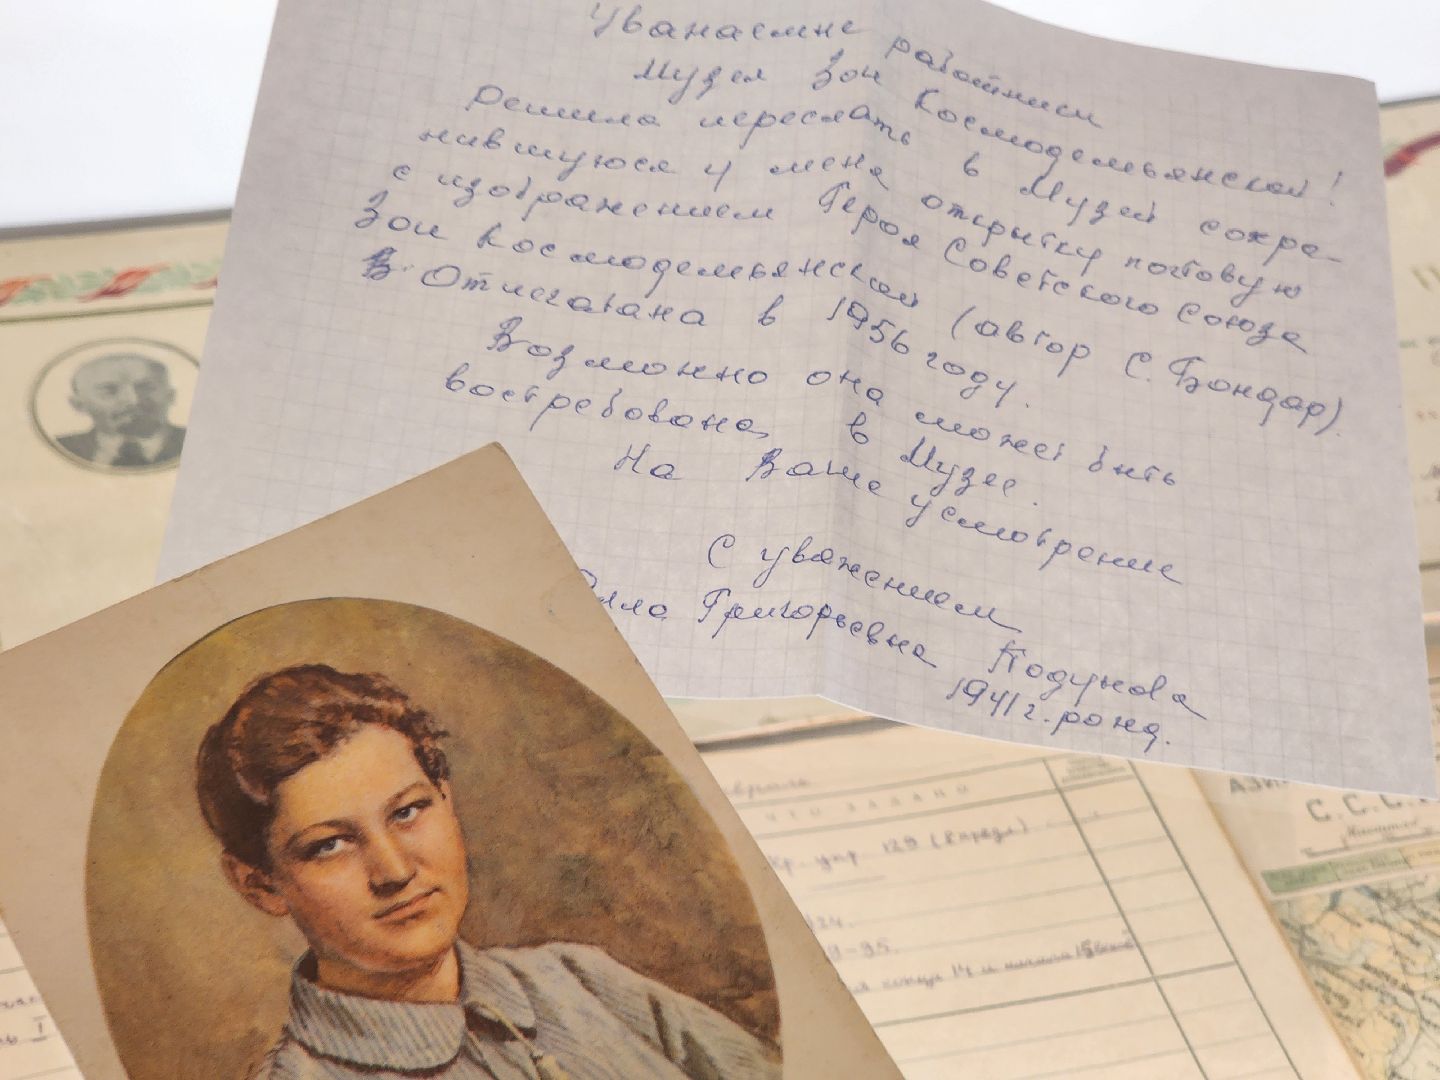 Уважаемые работники
Музея Зои Космодемьянской!
Решила переслать в Музей сохра-
нившуюся у меня открытку почтовую
с изображением Героя Советского Союза
Зои Космодемьянской (автор С. Бондар).
В. Отпечатана в 1956 году.
Возможно она может быть
востребована в Музее.
На Ваше усмотрение
С уважением
Алла Григорьевна Подунова
1941 г. рожд.
ЧТО ЗАДАНО
упр. 129
С.С.С.